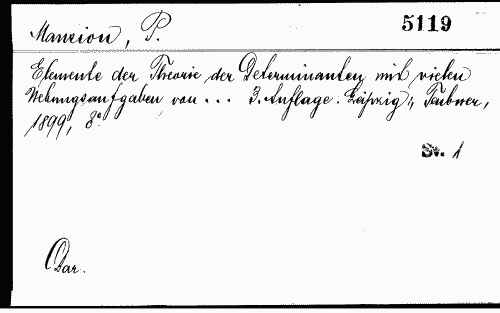 Mansion, P. 5119
Elemente der Theorie der Determinanten mit vielen
Uebungsaufgaben von ... 3. Auflage. Leipzig, Teubner,
1899, 8º
St. 1
Dar.